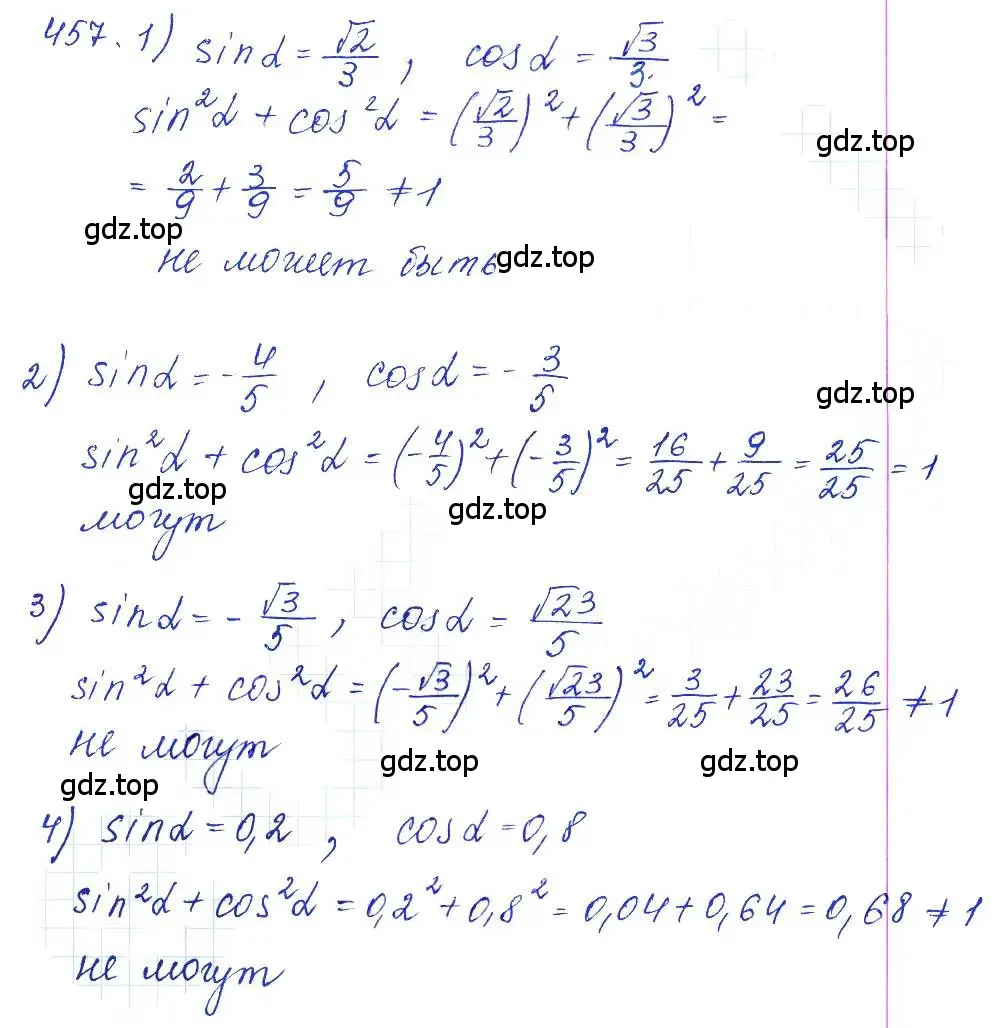 457. 1) sin α = √2/3 , cos α = √3/3
sin²α + cos²α = (√2/3)² + (√3/3)² =
gdz.top
= 2/9 + 3/9 = 5/9 ≠ 1
gdz.top
не может быть gdz.top
2) sin α = - 4/5 , cos α = - 3/5
gdz.top
sin²α + cos²α = (-4/5)² + (-3/5)² = 16/25 + 9/25 = 25/25 = 1
gdz.top gdz.top
могут
3) sin α = - √3/5 , cos α = √23/5
sin²α + cos²α = (-√3/5)² + (√23/5)² = 3/25 + 23/25 = 26/25 ≠ 1
не могут
gdz.top gdz.top gdz.top
4) sin α = 0,2 , cos α = 0,8
sin²α + cos²α = 0,2² + 0,8² = 0,04 + 0,64 = 0,68 ≠ 1
не могут